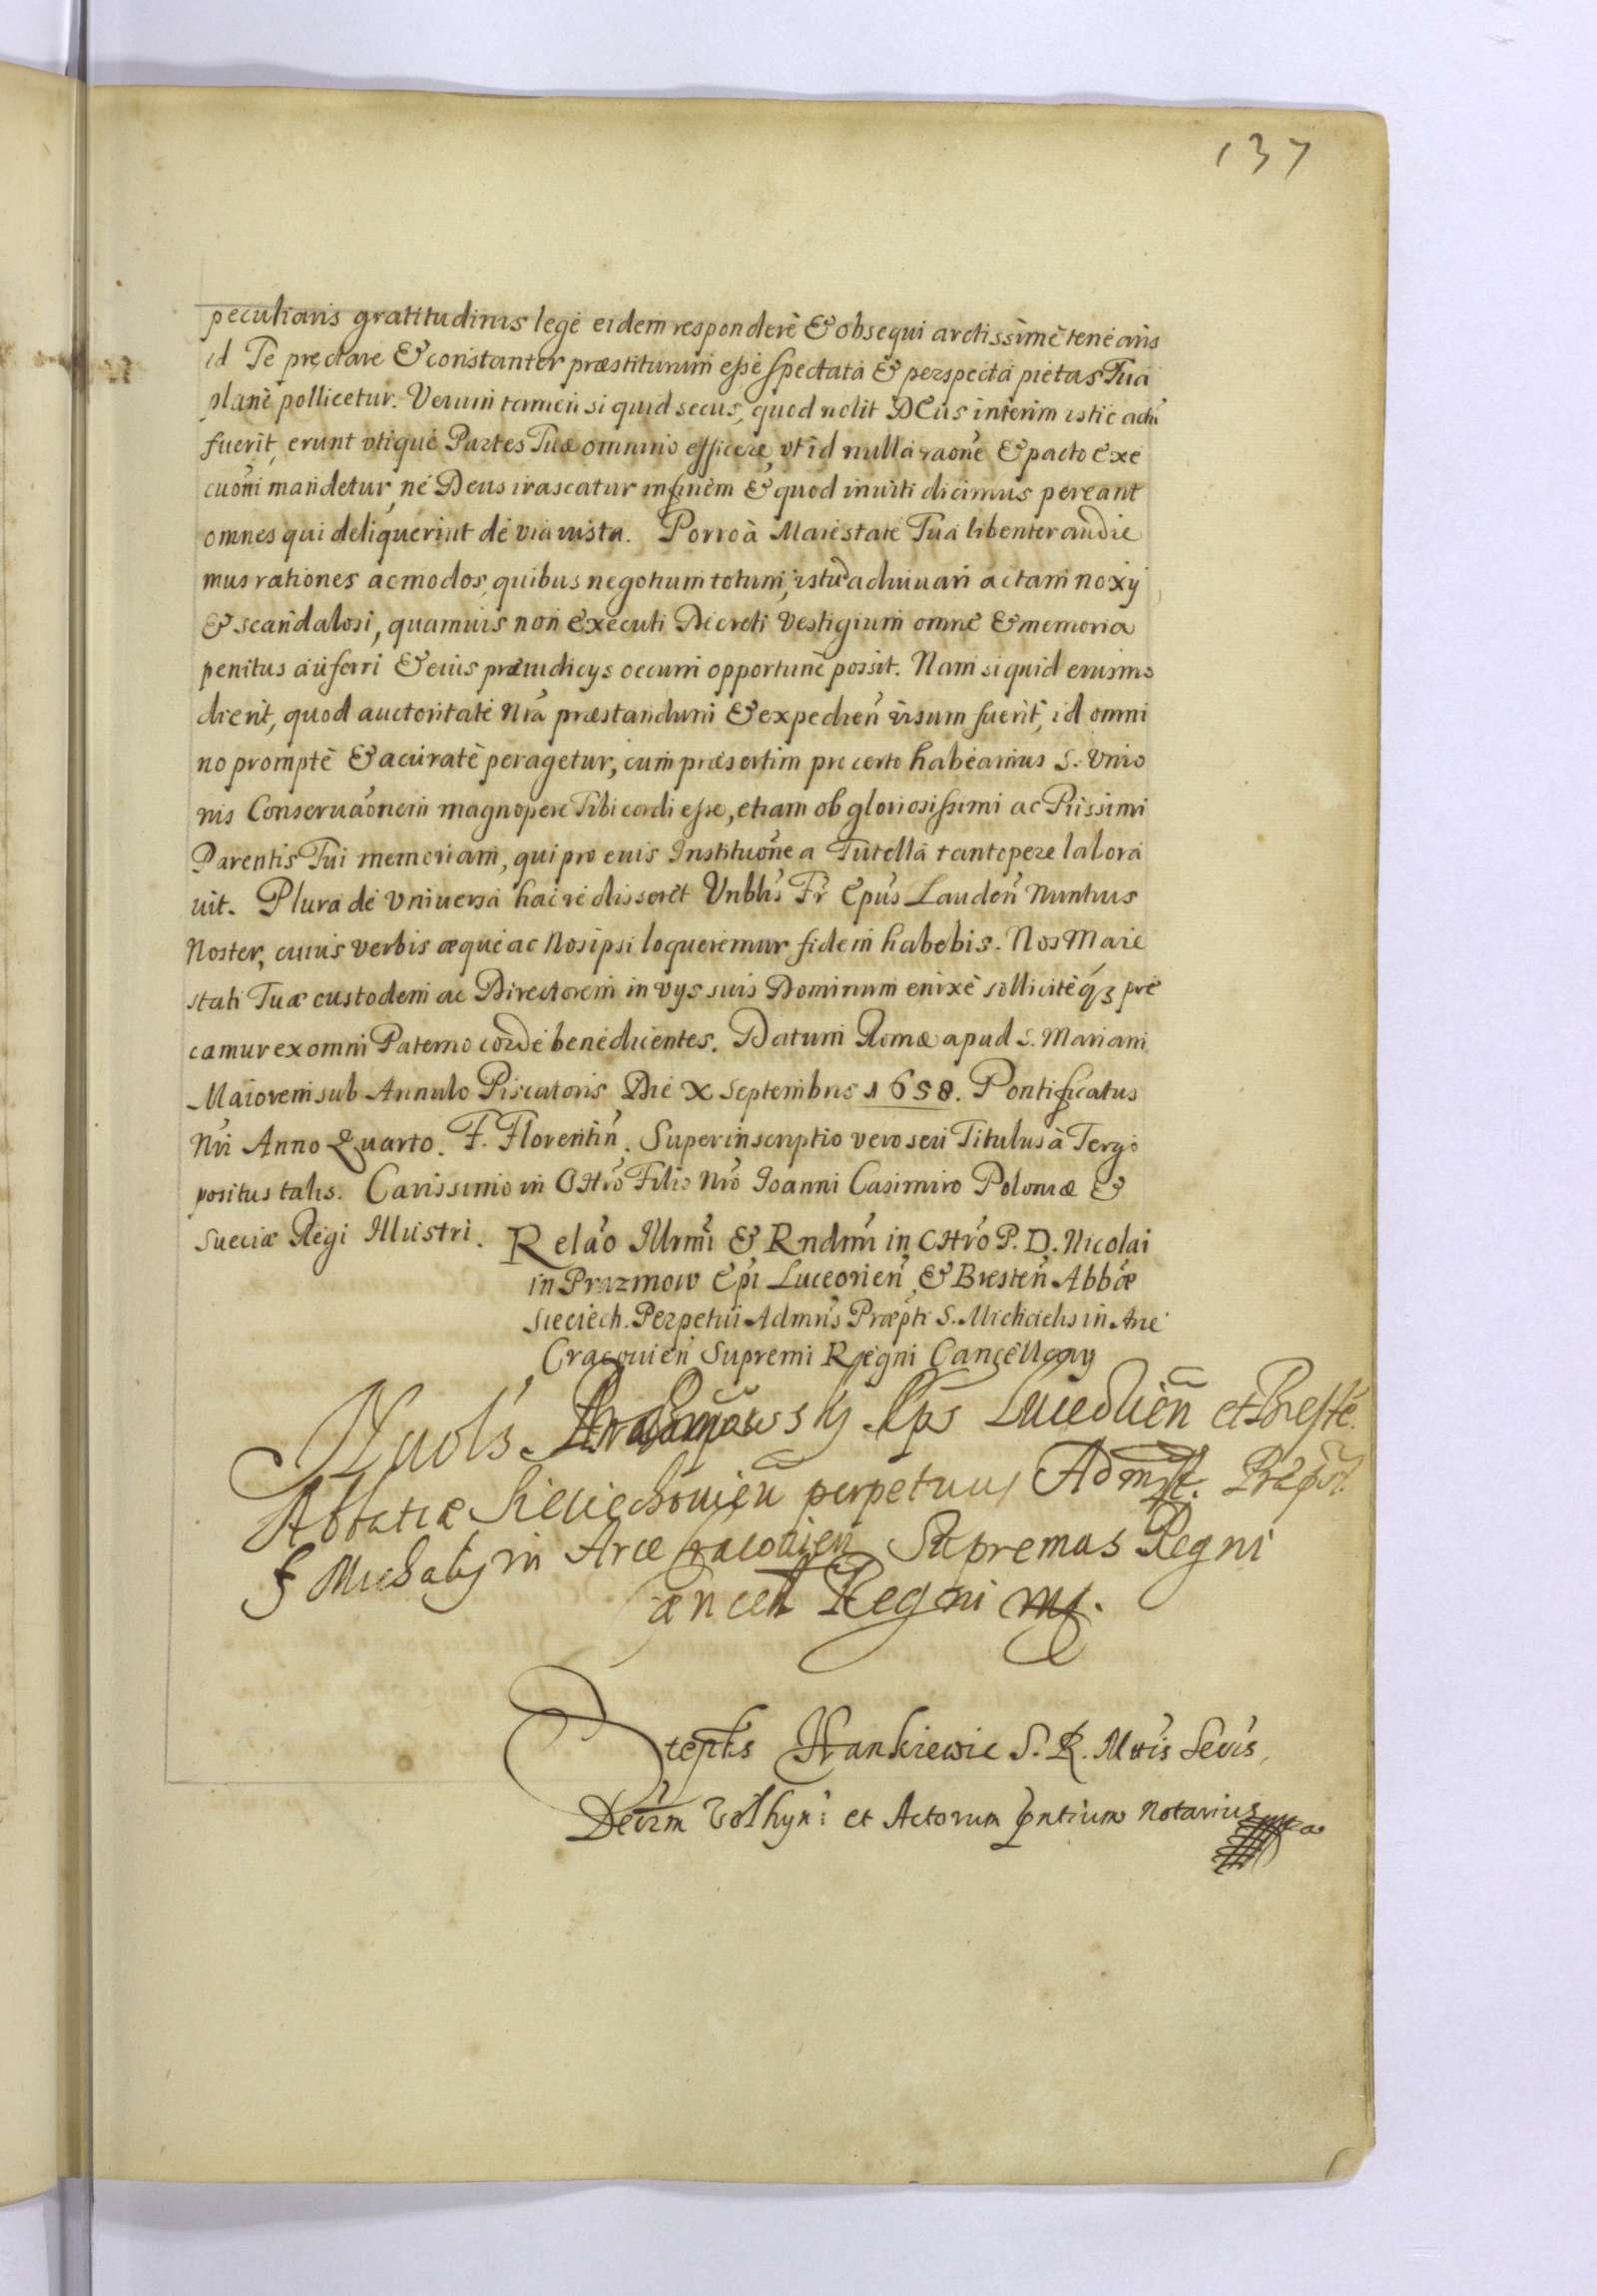 137
peculiaris gratitudinis lege eidem respondere & obsequi arctissimè tenearis
id Te pręclare & constanter præstiturum esse spectata & perspecta pietas Tua
planè pollicetur. Verum tamen si quid secus, quod nolit DEus interim istic actũ
fuerit, erunt vtique Partes Tuæ omnino efficere, vt id nulla raõne & pacto exe
cuõni mandetur, ne Deus irascatur in finem & quod inuiti dicimus pereant
omnes qui deliquerint de via iusta. Porro à Maiestate Tua libenter audie
mus rationes ac modos, quibus negotium totum, istud adiuuari ac tam noxij
& scandalosi, quamuis non executi Decreti vestigium omne & memoria
penitus auferri & eius præiudicijs occurri opportunè possit. Nam si quid eiusmo
di erit, quod auctoritate Nrã præstandum & expedien̄ visum fuerit, id omni
no promptè & acuratè peragetur, cum præsertim pro certo habeamus S. Vnio
nis Conseruaõnem magnopere Tibi cordi esse, etiam ob gloriosissimi ac Piissimi
Parentis Tui memoriam, qui pro eius Instituõne a Tutella tantopere labora
uit. Plura de vniuersa hac re disseret Vnblis Fr Epus Lauden̄ Nuntius
Noster, cuius verbis æque ac Nos ipsi loqueremur fidem habebis. Nos Maie
stati Tuæ custodem ac Directorem in vijs suis Dominum enixè sollicitèqз pre
camur ex omni Paterno corde benedicentes. Datum Romæ apud S. Mariam
Maiorem sub Annulo Piscatoris Die X Septembris 1658. Pontificatus
Nri Anno Quarto. F. Florentin̄. Superinscriptio vero seu Titulus à Tergo
positus talis. Carissimo in CHro Filio Nro Ioanni Casimiro Poloniæ &
Sueciæ Regi Illustri. Relaõ Illrmi & Rndmi in CHro P. D. Nicolai
in Prazmow Epi Luceorien̄ & Bresten̄ Abbæ
Sieciech. Perpetui Admris Præpti S. Michaelis in Arce
Cracouien̄ Supremi Regni Cancellarij
Nicols Prazmowsky Eps Luceorien̄ et Breste.
Abbatiæ Sieciechouien̄ perpetuus Admr. Præpst.
S Michaelis in Arce Cracouien̄ Supremus Regni
Cancell Regni mp.
Stephs Hankiewic S. R. Mtis Secrs,
Decrm Volhyn: et Actorum pntium Notarius mpa